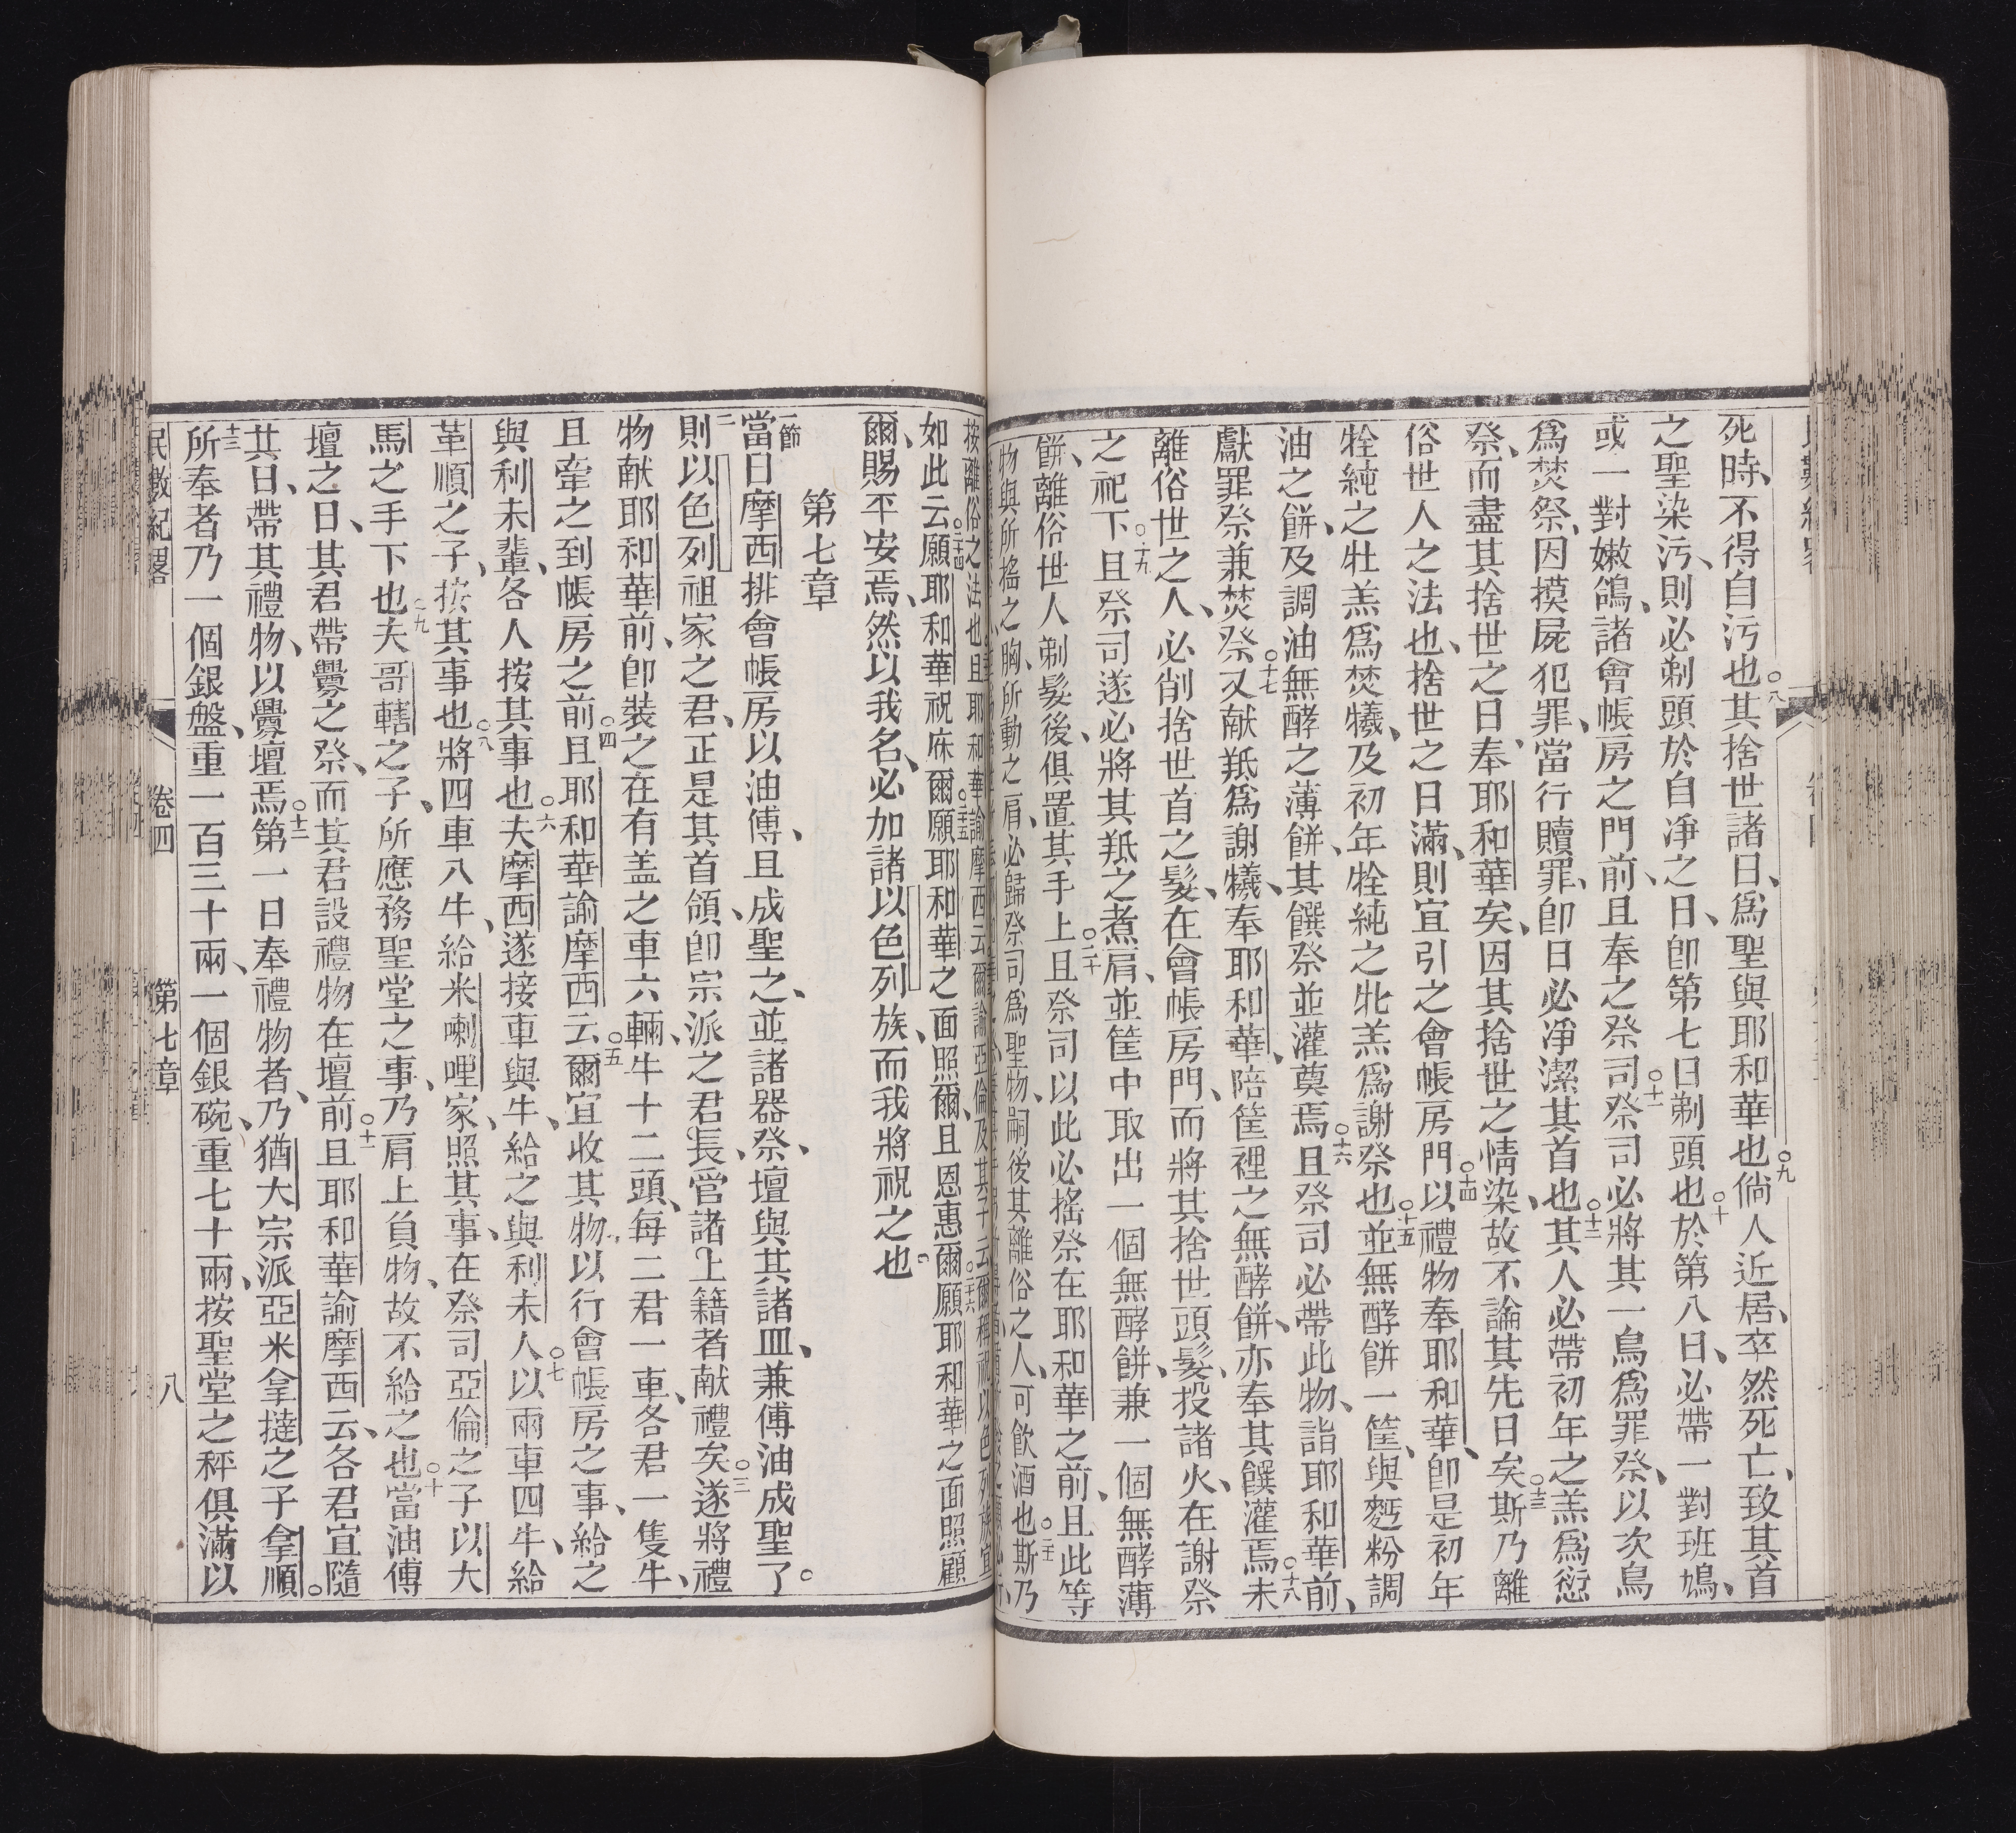 死時、不得自污也○八其捨世諸日、爲聖與耶和華也○九倘人近居、卒然死亡、致其首
之聖染污、則必剃頭於自凈之日、卽第七日剃頭也○十於第八日、必帶一對班鳩、
或一對嫩鴿、諸會帳房之門前、且奉之祭司○十一祭司必將其一鳥爲罪祭、以次鳥
爲焚祭、因摸屍犯罪、當行贖罪、卽日必凈潔其首也○十二其人必帶初年之羔爲愆
祭、而盡其捨世之日、奉耶和華矣、因其捨世之情染、故不論其先日矣○十三斯乃離
俗世人之法也、捨世之日滿、則宜引之會帳房門○十四以禮物奉耶和華、卽是初年
牷純之牡羔爲焚犧、及初年牷純之牝羔爲謝祭也○十五並無酵餅一筐、與麪粉調
油之餅、及調油無酵之薄餅、其饌祭並灌奠焉○十六且祭司必帶此物、詣耶和華前、
獻罪祭兼焚祭○十七又献羝爲謝犧、奉耶和華、陪筐裡之無酵餅、亦奉其饌灌焉○十八未
離俗世之人、必削捨世首之髮、在會帳房門、而將其捨世頭髮、投諸火、在謝祭
之祀下○十九且祭司遂必將其羝之煮肩、並筐中取出一個無酵餅、兼一個無酵薄
餅、離俗世人剃髮後、俱置其手上○二十且祭司以此必搖祭在耶和華之前、且此等
物與所搖之胸、所動之肩、必歸祭司爲聖物、嗣後其離俗之人、可飲酒也○二十一斯乃
按離俗之法也且耶和華諭摩西云爾諭亞倫及其子云爾
如此云○二十四願耶和華祝庥爾○二十五願耶和華之面照爾、且恩惠爾○二十六願耶和華之面照顧
爾、賜平安焉、然以我名、必加諸以色列族、而我將祝之也
第七章
一節當日摩西排會帳房以油傅、且成聖之、並諸器、祭壇與其諸皿、兼傅油成聖了。
二則以色列祖家之君、正是其首領、卽宗派之君長、管諸上籍者献禮矣○三遂將禮
物献耶和華前、卽裝之在有盖之車六輛、牛十二頭、每二君一車、各君一隻牛、
且牽之到帳房之前○四且耶和華諭摩西云○五爾宜收其物、以行會帳房之事、給之
與利未輩、各人按其事也○六夫摩西遂接車與牛、給之與利未人○七以兩車四牛、給
革順之子、按其事也○八將四車八牛、給米喇哩家、照其事、在祭司亞倫之子以大
馬之手下也○九夫哥轄之子、所應務聖堂之事、乃肩上負物、故不給之也○十當油傅
壇之日、其君帶釁之祭、而其君設禮物在壇前○十一且耶和華諭摩西云、各君宜隨
其日、帶其禮物、以釁壇焉○十二第一日奉禮物者、乃猶大宗派亞米拿撻之子拿順。
十三所奉者乃一個銀盤、重一百三十兩、一個銀碗、重七十兩、按聖堂之秤俱滿以
民數紀畧 卷四 第七章 八